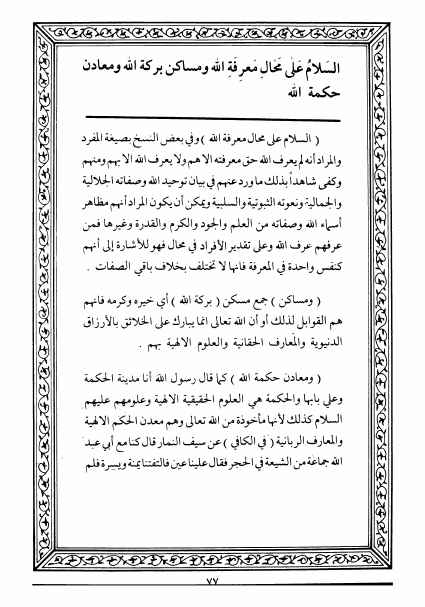 السَلامُ عَلَى مَحَالِ مَعرِفَةِ الله ومساكن بركة الله ومعادن
حكمة الله
( السلام على محال معرفة الله ) وفي بعض النسخ بصيغة المفرد
والمراد أنه لم يعرف الله حق معرفته الا هم ولا يعرف الله الا بهم ومنهم
وكفى شاهداً بذلك ما ورد عنهم في بيان توحيد الله وصفاته الجلالية
والجمالية ونعوته الثبوتية والسلبية ويمكن أن يكون المراد أنهم مظاهر
أسماء الله وصفاته من العلم والجود والكرم والقدرة وغيرها فمن
عرفهم عرف الله وعلى تقدير الأفراد في محال فهو للأشارة إلى أنهم
كنفس واحدة في المعرفة فانها لا تختلف بخلاف باقي الصفات .
( ومساكن ) جمع مسكن ( بركة الله ) أي خيره وكرمه فانهم
هم القوابل لذلك أو أن الله تعالى انما يبارك على الخلائق بالأرزاق
الدنيوية والمعارف الحقانية والعلوم الالهية بهم .
( ومعادن حكمة الله ) كما قال رسول الله أنا مدينة الحكمة
وعلي بابها والحكمة هي العلوم الحقيقية الالهية وعلومهم عليهم
السلام كذلك لأنها مأخوذة من الله تعالى وهم معدن الحكم الالهية
والمعارف الربانية ( في الكافي ) عن سيف التمار قال كنا مع أبي عبد
الله جماعة من الشيعة في الحجر فقال علينا عين فالتفتنا يمنة ويسرة فلم
٧٧